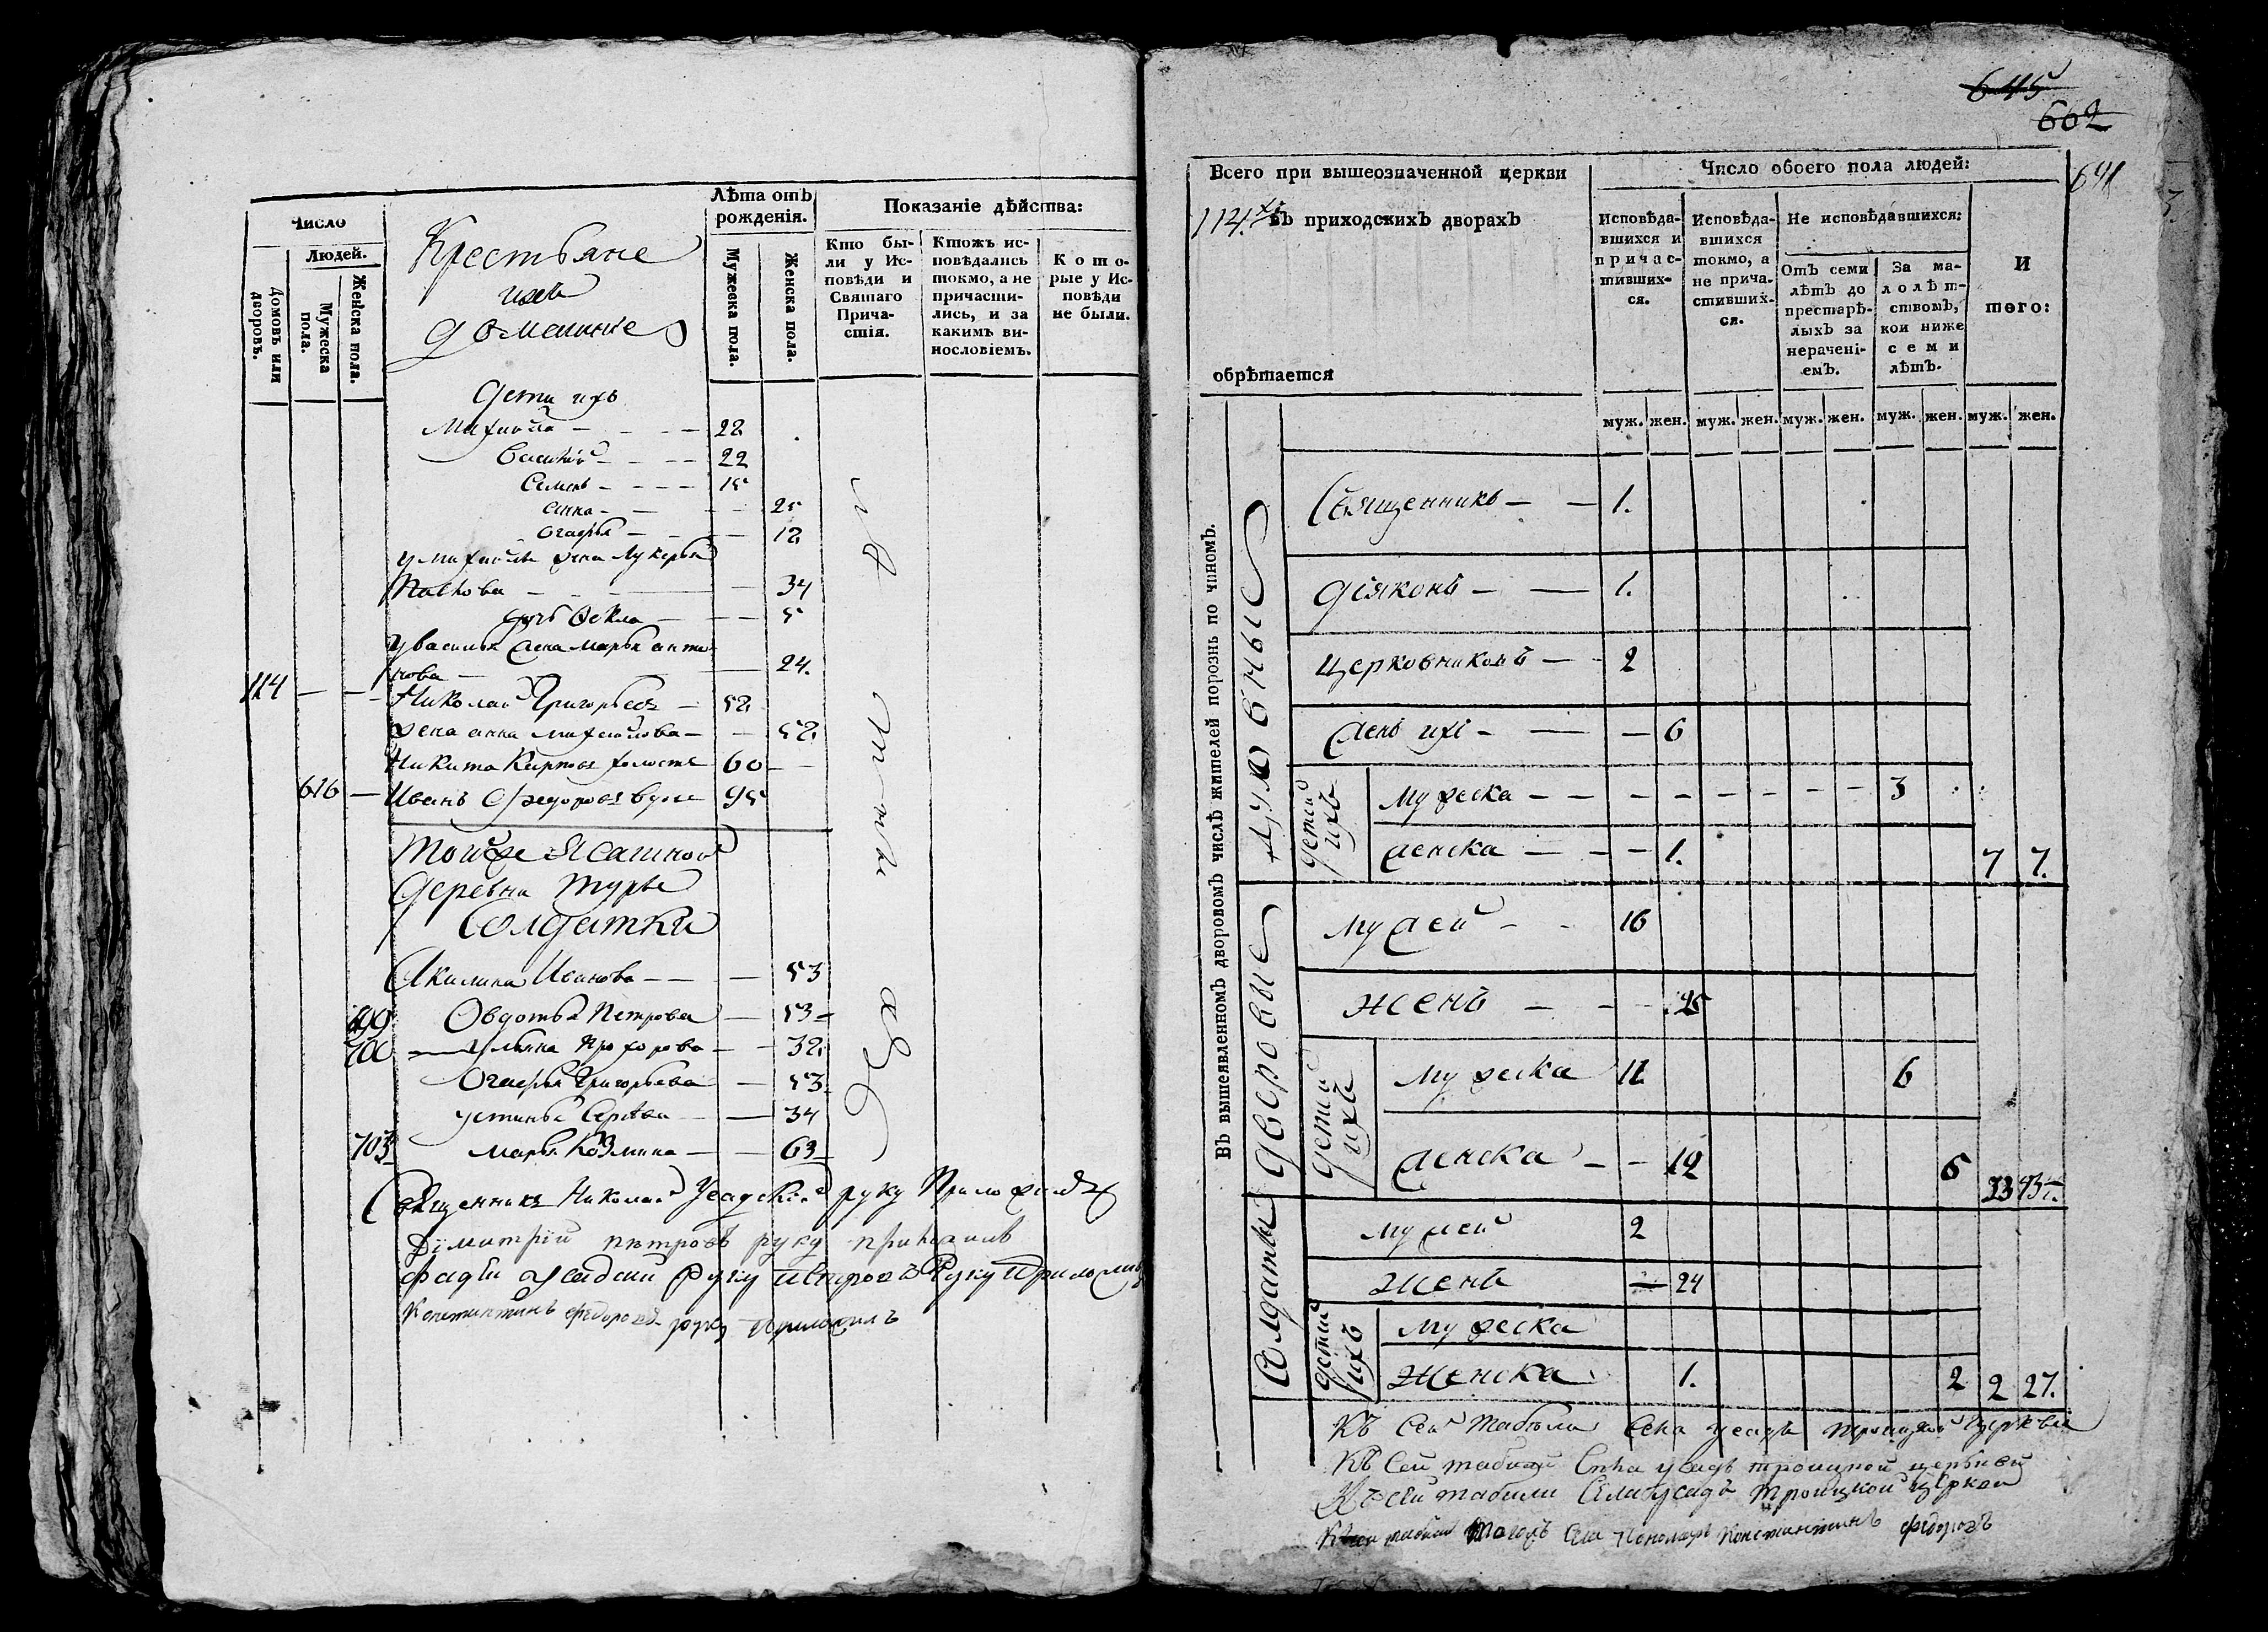 Число
Людей.
Домовъ или дворовъ.
Мужеска пола.
Женска пола.
Крестьяне
ихъ
домашние
Лѣта отъ рожденія.
Мужеска пола.
Женска пола.
Показаніе дѣйства:
Кто были у Исповѣди и Святаго Причастія.
Ктожъ исповѣдались токмо, а не причастились, и за какимъ винословіемъ.
Которые у Исповѣди не были.
дети ихъ
Михайла — 22
Василий — 22
Семенъ — 15
анна — 25
Огафья — 12
у михайлы жена Лукерья
— 34
дочь Фекла — 5
у василья жена марья анти
нова — 24.
114 — Николай Григорьевъ — 52
жена анна михайлова — 52
Никита Карповъ холостъ 60
616 — Иванъ Федоровъ вдовъ 95
Тойже Ясашной
деревни Турье
Солдатки
Акилина Иванова — 53
699 Овдотья Петрова — 53
700 ульяна Прохорова — 32
Огафья Григорьева — 53
устинья — 34
703 марья Козмина — 63
Священникъ Николай Усадский руку Приложилъ
Димитрій петровъ руку приложилъ
руку Приложилъ
Константинъ федоровъ руку Приложилъ
645
662
641
Всего при вышеозначенной церкви
114.хъ въ приходскихъ дворахъ
обрѣтается
Число обоего пола людей:
Исповѣдавшихся и причастившихся.
Исповѣдавшихся токмо, а не причастившихся.
Не исповѣдавшихся:
Отъ семи лѣтъ до престарѣлыхъ за нераченіемъ.
За малолѣтствомъ, кои ниже семи лѣтъ.
И того:
муж. жен. муж. жен. муж. жен. муж. жен. муж. жен.
Въ вышеявленномъ дворовомъ числѣ жителей порознь по чиномъ.
Духовныя
Священникъ — 1.
діяконъ — 1.
церковниковъ — 2
женъ ихъ — 6
детей ихъ
мужеска — 3
женска — 1. 7 7.
дворовые
мужей — 16
женъ — 25
детей ихъ
мужеска 11 6
женска — 12 6 33 43.
Солдаты
мужей 2
женъ — 24
детей ихъ
мужеска
женска 1. 2 2 27.
Къ Сей табели Села усадъ троицкой церкви
Къ Сей табели Села усадъ троицкой церкви
Къ сей табели Села усадъ Троицкой церкви
Къ сей табели Тогожъ Села Пономарь Константинъ федоровъ